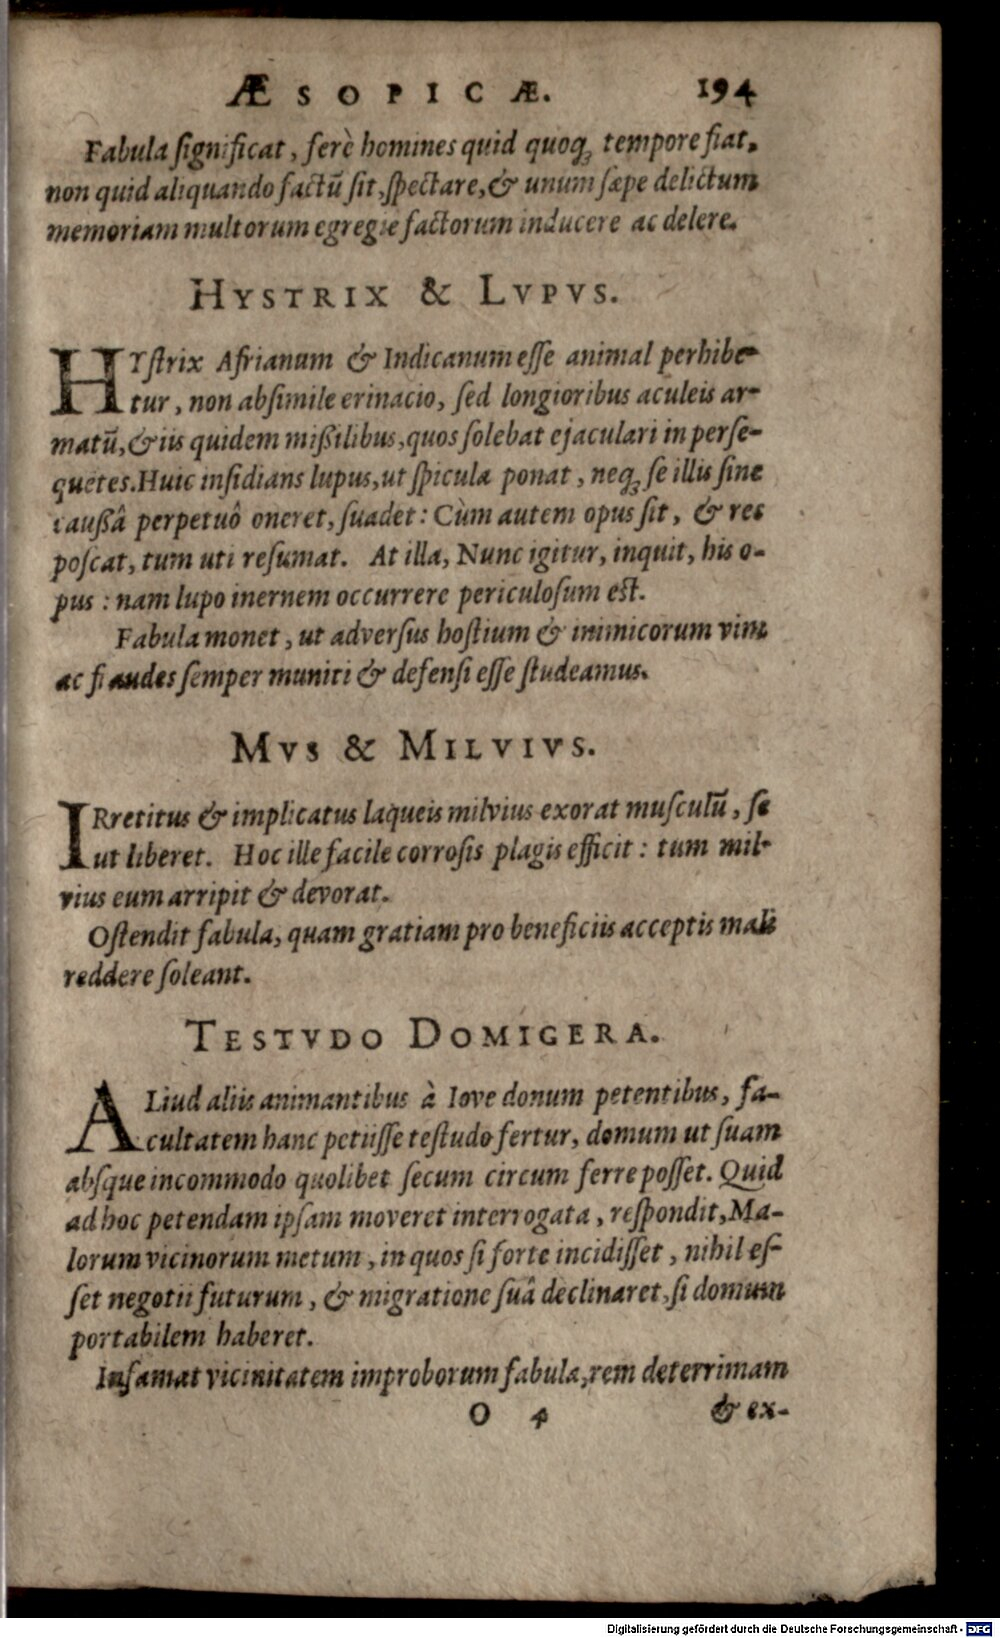 ÆSOPICÆ. 194
Fabula significat, ferè homines quid quoq; tempore fiat,
non quid aliquando factũ sit, spectare, & unum sæpe delictum
memoriam multorum egregie factorum inducere ac delere.
HYSTRIX & LVPVS.
HYstrix Afrianum & Indicanum esse animal perhibe-
tur, non absimile erinacio, sed longioribus aculeis ar-
matũ, & iis quidem mißilibus, quos solebat ejaculari in perse-
quẽtes. Huic insidians lupus, ut spicula ponat, neq; se illis sine
caußâ perpetuô oneret, suadet: Cùm autem opus sit, & res
poscat, tum uti resumat. At illa, Nunc igitur, inquit, his o-
pus: nam lupo inermem occurrere periculosum est.
Fabula monet, ut adversus hostium & inimicorum vim
ac fraudes semper muniti & defensi esse studeamus.
MVS & MILVIVS.
IRretitus & implicatus laqueis milvius exorat musculũ, se
ut liberet. Hoc ille facile corrosis plagis efficit: tum mil-
vius eum arripit & devorat.
Ostendit fabula, quam gratiam pro beneficiis acceptis mali
reddere soleant.
TESTVDO DOMIGERA.
ALiud aliis animantibus à Iove donum petentibus, fa-
cultatem hanc petiisse testudo fertur, domum ut suam
absque incommodo quolibet secum circum ferre posset. Quid
ad hoc petendam ipsam moveret interrogata, respondit, Ma-
lorum vicinorum metum, in quos si forte incidisset, nihil es-
set negotii futurum, & migratione suâ declinaret, si domum
portabilem haberet.
Infamat vicinitatem improborum fabula, rem deterrimam
O 4 & ex-
Digitalisierung gefördert durch die Deutsche Forschungsgemeinschaft - DFG